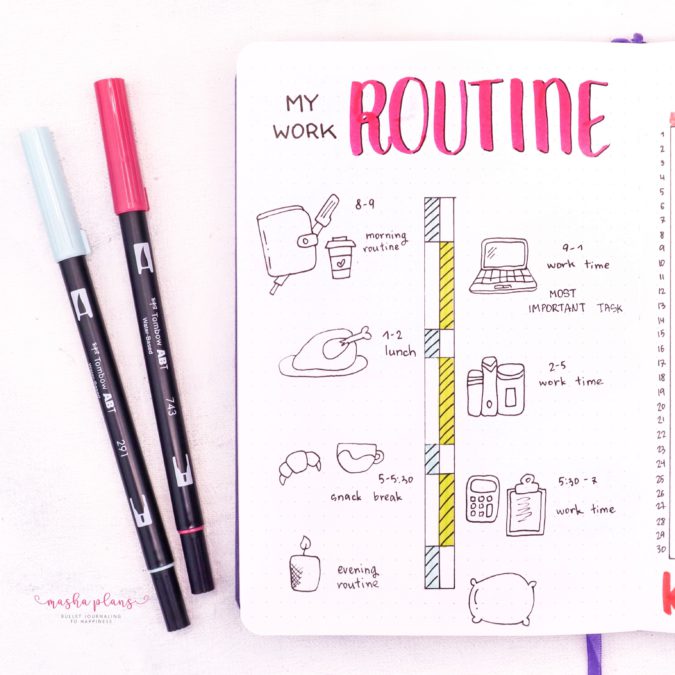 MY
WORK
ROUTINE
8-9
morning
routine
9-1
work time
MOST
IMPORTANT TASK
1-2
lunch
2-5
work time
5-5:30
snack break
5:30-7
work time
evening
routine
Tombow ABT
Water-Based
291
Tombow ABT
Water-Based
743
masha plans
BULLET JOURNALING
TO HAPPINESS
1
2
3
4
5
6
7
8
9
10
11
12
13
14
15
16
17
18
19
20
21
22
23
24
25
26
27
28
29
30